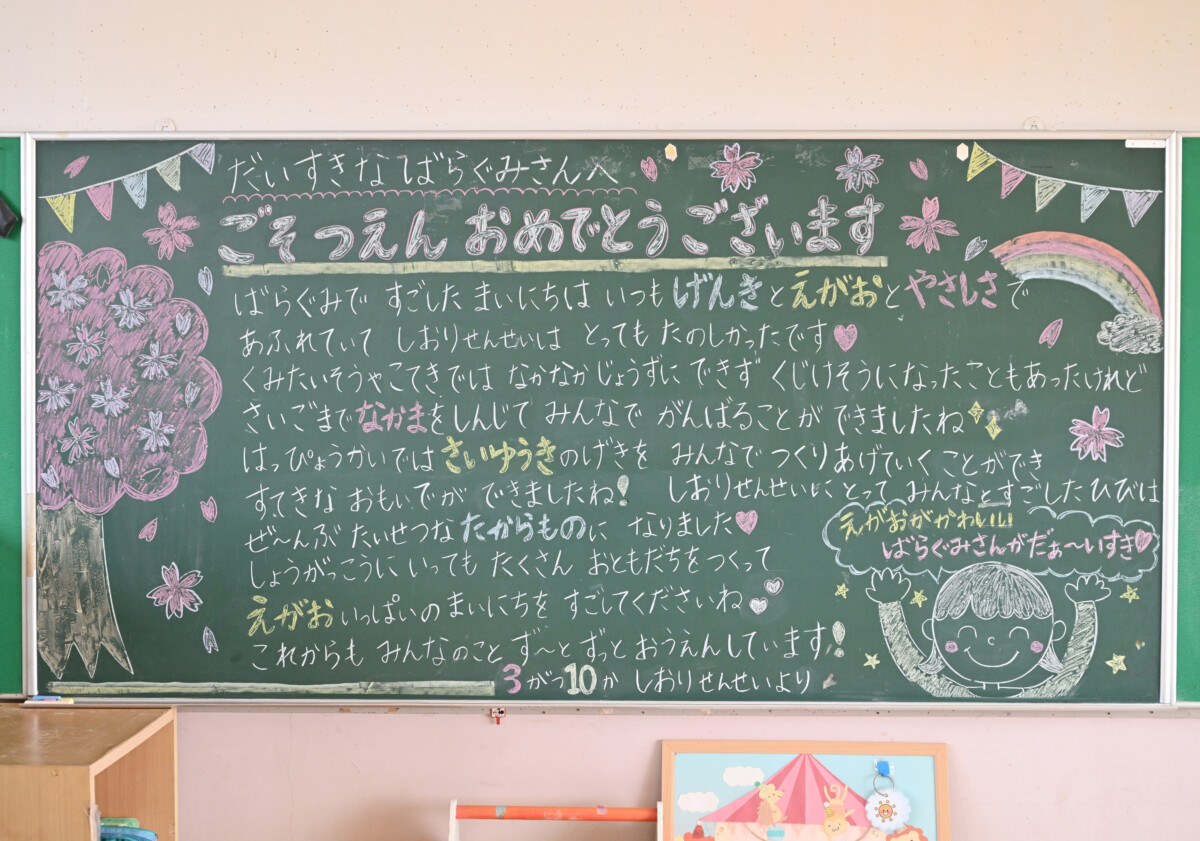 だいすきな ばらぐみさんへ
ごそつえん おめでとうございます
ばらぐみで すごした まいにちは いつも げんきと えがおと やさしさで
あふれていて しおりせんせいは とっても たのしかったです
くみたいそうやこてきでは なかなか じょうずに できず くじけそうになったこともあったけれど
さいごまで なかまをしんじて みんなで がんばることが できましたね
はっぴょうかいでは さいゆうきのげきを みんなで つくりあげていく ことができ
すてきな おもいでが できましたね! しおりせんせいにとって みんなとすごしたひびは
ぜ〜んぶ たいせつな たからものに なりました
しょうがっこうに いっても たくさん おともだちを つくって
えがお いっぱいの まいにちを すごしてくださいね
これからも みんなのこと ず〜と ずっと おうえんしています!
3がつ10か しおりせんせいより
えがおがかわいい
ばらぐみさんがだぁ〜いすき